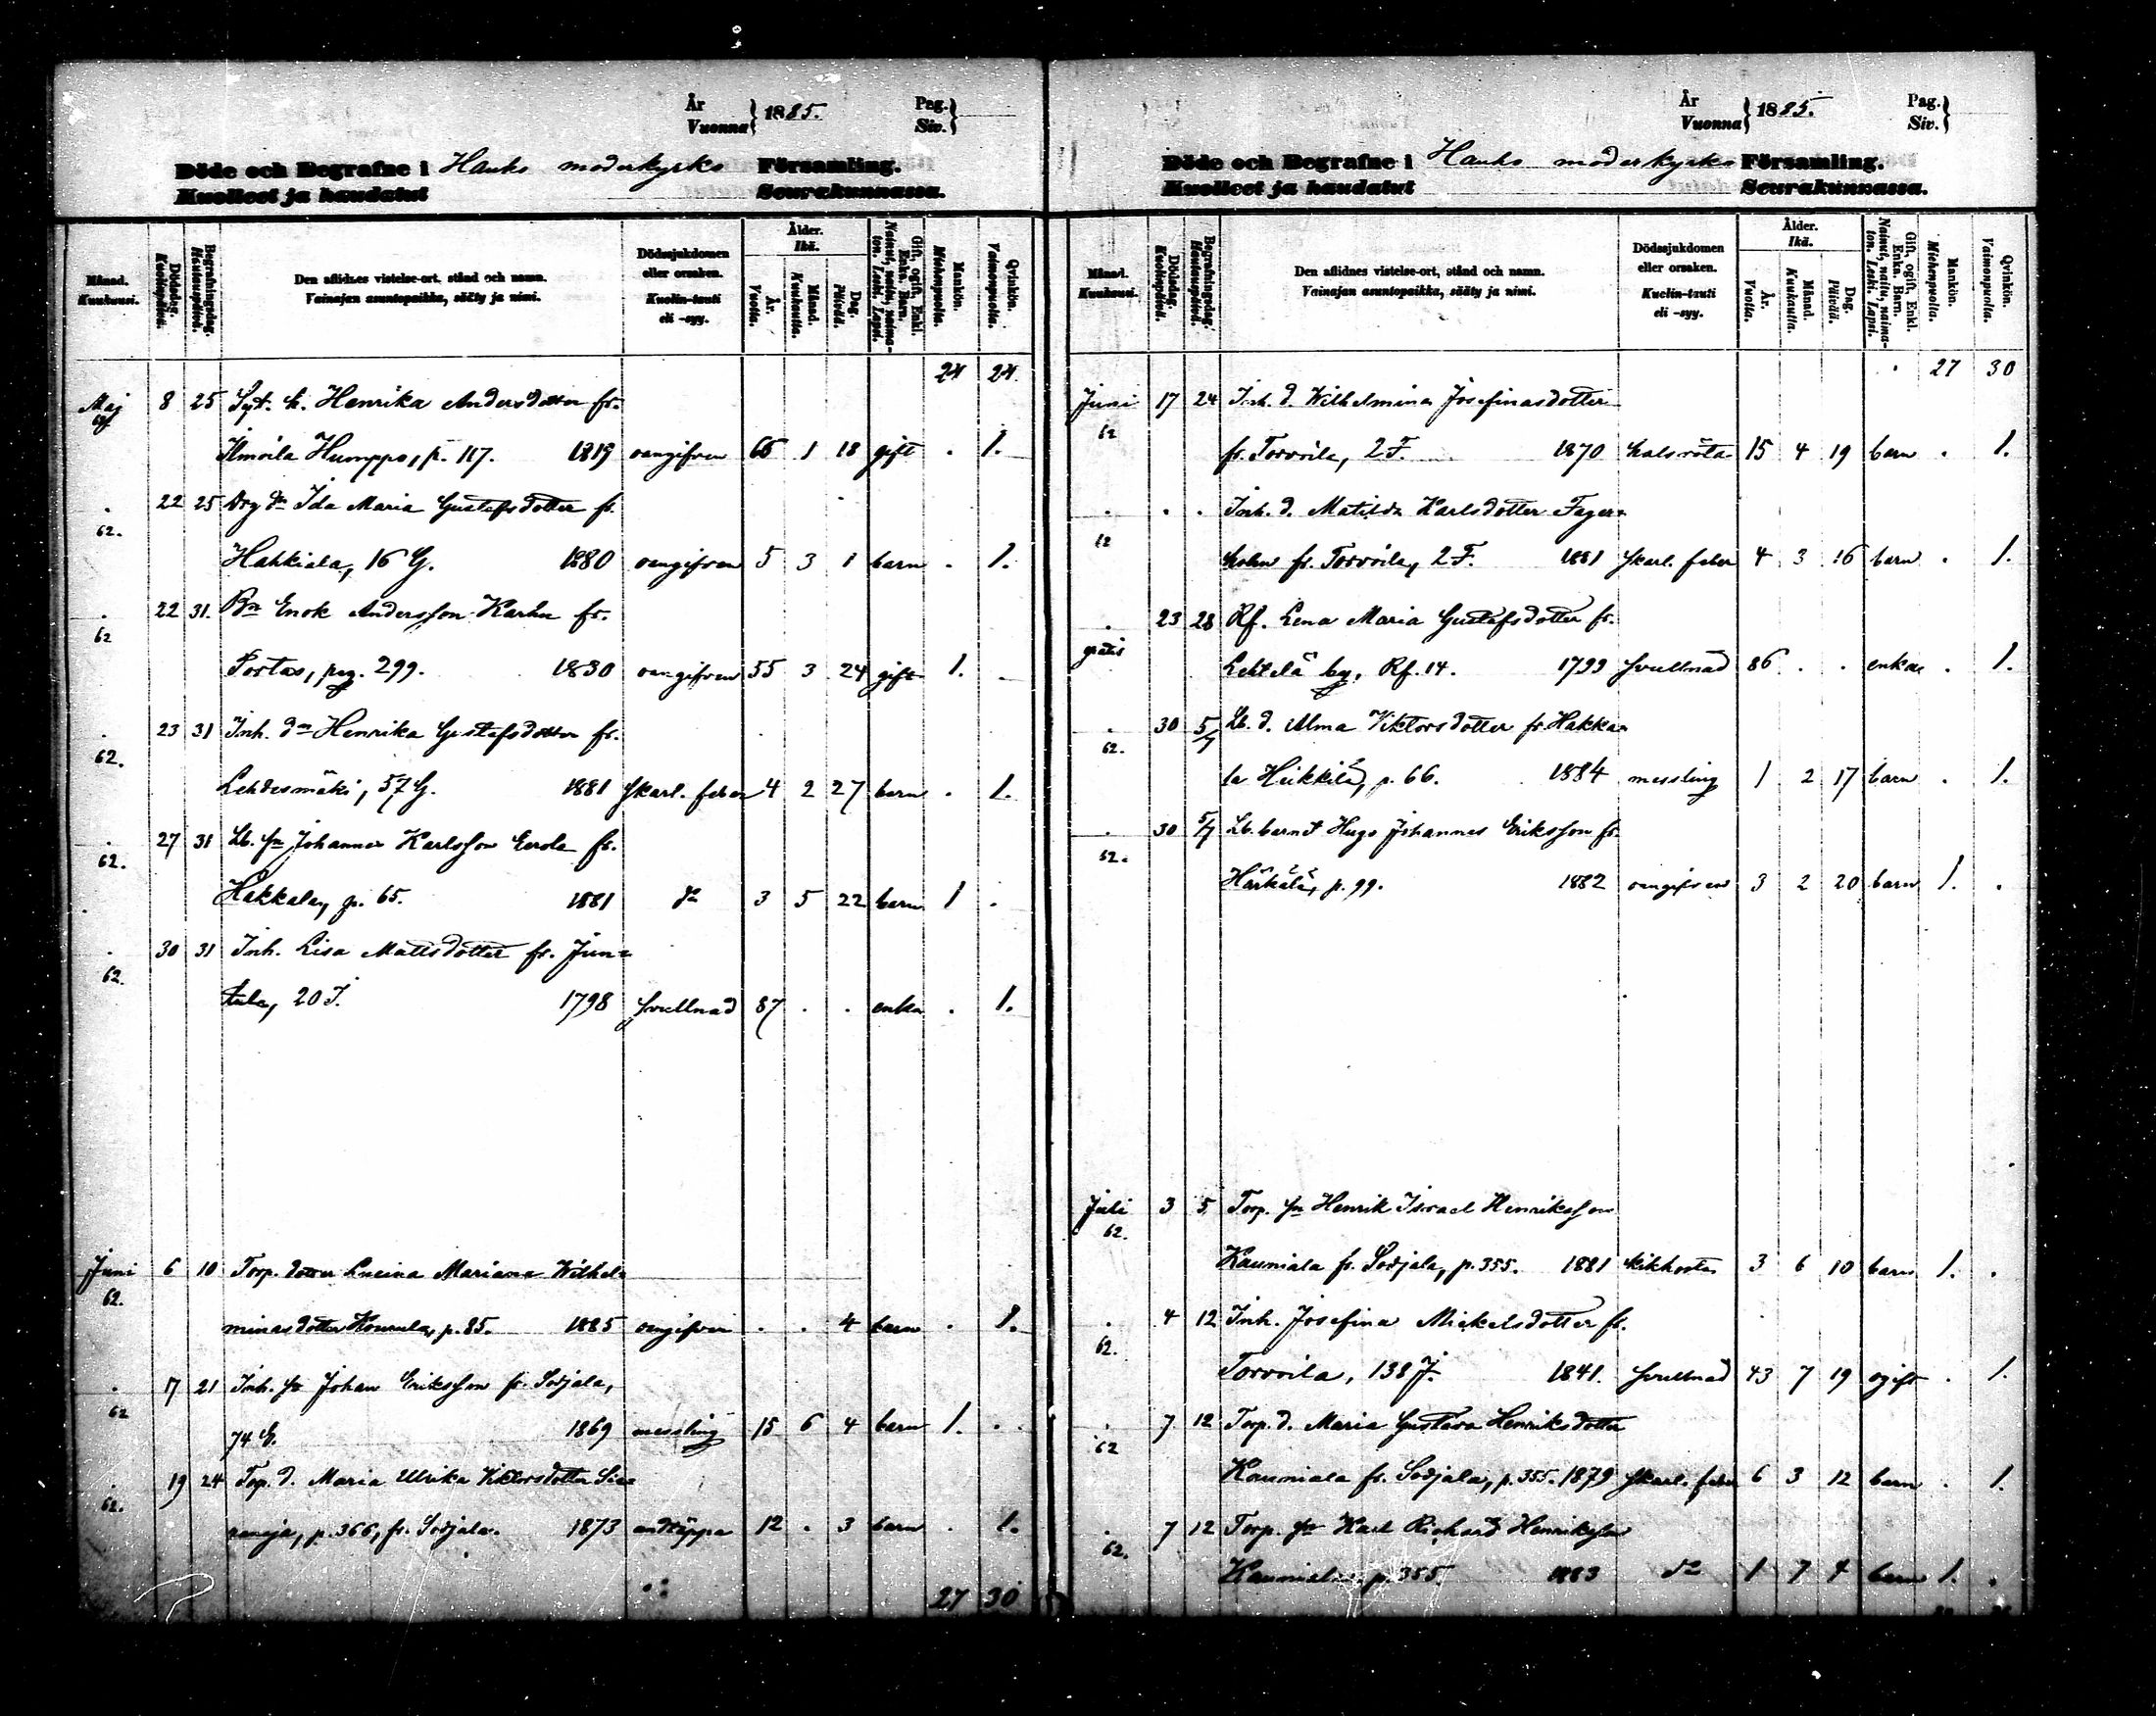 År
Vuonna } 1885.
Pag.
Siv. }
Döde och Begrafne i Hauho moderkyrko Församling.
Kuolleet ja haudatut Seurakunnassa.
Månad. Kuukausi.
Dödsdag. Kuolinpäivä.
Begrafningsdag. Hautauspäivä.
Den aflidnes vistelse-ort, stånd och namn.
Vainajan asuntopaikka, sääty ja nimi.
Dödssjukdomen eller orsaken.
Kuolin-tauti eli -syy.
Ålder. Ikä.
År. Vuotta.
Månad. Kuukautta.
Dag. Päivää.
Gift, ogift, Enkl. Enka. Barn. Nainut, naitu, naimaton. Leski. Lapsi.
Mankön. Miehenpuolta.
Qvinkön. Vaimonpuolta.
24 24.
Maj 8 25 Syt. h. Henrika Andersdotter fr.
Ilmoila Humppo, p. 117. 1819 oangifven 66 1 18 gift . 1.
. 22 25 Drg dr Ida Maria Gustafsdotter fr.
62.
Hahkiala, 16 G. 1880 oangifven 5 3 1 barn . 1.
. 22 31. Bn Enok Andersson Karhu fr.
62
Portas, pag. 299. 1830 oangifven 55 3 24 gift 1. .
. 23 31 Inh. dr Henrika Gustafsdotter fr.
62.
Lehdesmäki, 57 G. 1881 skarl. feber 4 2 27 barn . 1.
. 27 31 Lb. sn Johannes Karlsson Eerola fr.
62.
Hakkala, p. 65. 1881 do 3 5 22 barn 1 .
. 30 31 Inh. Lisa Mattsdotter fr. Jun=
62.
tula, 20 J. 1798 svullnad 87 . . enka . 1.
Juni 6 10 Torp. dotter Lucina Mariana Wilhel=
62.
minasdotter p. 85. 1885 oangifven . . 4 barn . 1.
. 17 21 Inh. sn Johan Eriksson fr. Sotjala,
62
74 G. 1869 messling 15 6 4 barn 1. .
. 19 24 Torp. d. Maria Ulrika Viktorsdotter
62.
p. 366, fr. Sotjala. 1873 andtäppa 12 . 3 barn . 1.
27 30
År
Vuonna } 1885.
Pag.
Siv. }
Döde och Begrafne i Hauho moderkyrko Församling.
Kuolleet ja haudatut Seurakunnassa.
Månad. Kuukausi.
Dödsdag. Kuolinpäivä.
Begrafningsdag. Hautauspäivä.
Den aflidnes vistelse-ort, stånd och namn.
Vainajan asuntopaikka, sääty ja nimi.
Dödssjukdomen eller orsaken.
Kuolin-tauti eli -syy.
Ålder. Ikä.
År. Vuotta.
Månad. Kuukautta.
Dag. Päivää.
Gift, ogift, Enkl. Enka. Barn. Nainut, naitu, naimaton. Leski. Lapsi.
Mankön. Miehenpuolta.
Qvinkön. Vaimonpuolta.
27 30
Juni 17 24 Inh. d. Wilhelmina Josefinasdotter
62
fr. Torvoila, 2 F. 1870 halsröta 15 4 19 barn . 1.
. . . Inh. d. Matilda Karlsdotter Fager=
62
holm fr. Torvoila, 2 F. 1881 skarl. feber 4 3 16 barn . 1.
. 23 28 Rf. Lena Maria Gustafsdotter fr.
gratis
Lehtelä by, Rf. 14. 1799 svullnad 86 . . enka . 1.
. 30 5/7 Lb. d. Alma Viktorsdotter fr. Hakka=
62.
la Heikkilä, p. 66. 1884 messling 1 2 17 barn . 1.
. 30 5/7 Lb. barnet Hugo Johannes Eriksson fr.
62.
Härkälä, p. 99. 1882 oangifven 3 2 20 barn 1. .
Juli 3 5 Torp. sn Henrik Israel Henriksson
62.
Kauniala fr. Sotjala, p. 355. 1881 kikhosta 3 6 10 barn 1. .
. 4 12 Inh. Josefina Mickelsdotter fr.
62.
Torvoila, 138 J. 1841. svullnad 43 7 19 ogift . 1.
. 7 12 Torp. d. Maria Gustava Henriksdotter
62
Kauniala fr. Sotjala, p. 355. 1879 skarl. feber 6 3 12 barn . 1.
. 7 12 Torp. sn Karl Richard Henriksson
62.
Kauniala, p. 355. 1883 do 1 7 4 barn 1. .